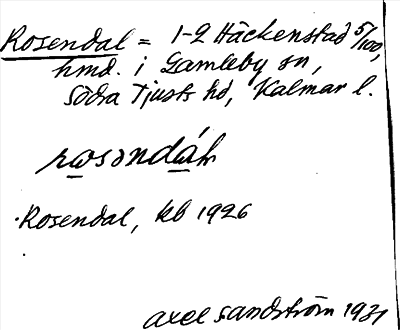 Rosendal = 1-2 Häckenstad 5/100,
hmd. i Gamleby sn,
Södra Tjusts hd, Kalmar l.
Rosendal, kb 1926
axel sandström 1931